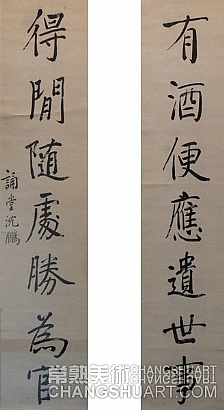 有酒便應遺世事
得閒隨處勝為官
誦堂沈鵬
常熟美術 CHANGSHUART
CHANGSHUART.COM
CHANGSHUART.COM